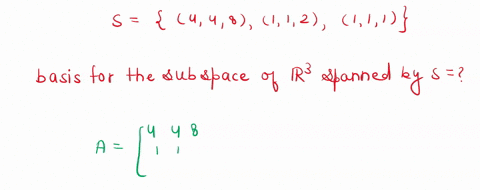 S = { (4,4,8), (1,1,2), (1,1,1)}
basis for the subspace of ℝ³ spanned by S=?
4 4 8
A = [ 1 1